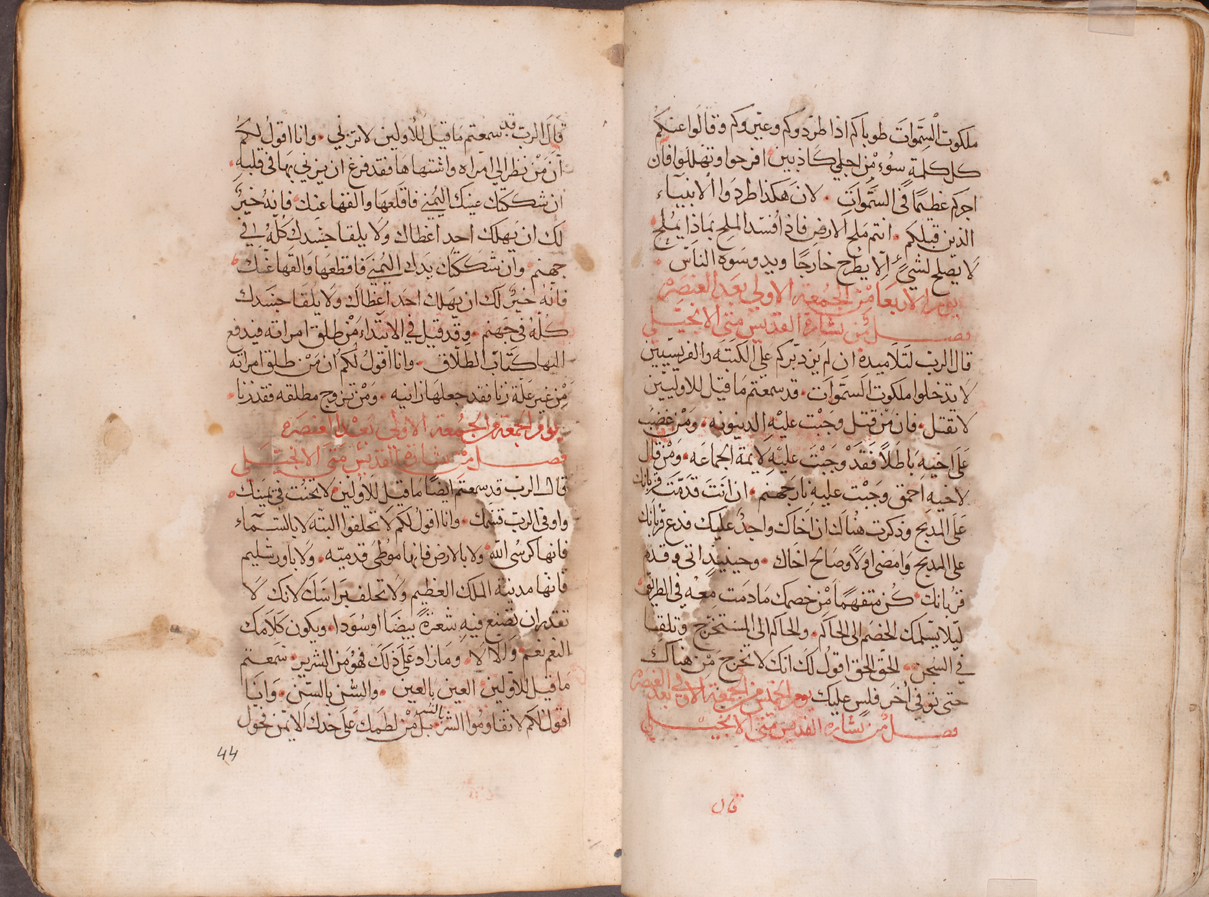 ملكوت السموات طوباكم اذا طردوكم وعيروكم وقالوا عنكم
كل كلمة سوء من اجلي كاذبين افرحوا وتهللوا فان
اجركم عظيما في السموات لان هكذا طردوا الانبياء
الذين قبلكم انتم ملح الارض فاذا افسد الملح بماذا يملح
لا يصلح لشيء الا يطرح خارجا ويدوسوه الناس
يوم الاربعا من الجمعة الاولى بعد العنصره
فصل من بشارة القديس متى الانجيلي
قال الرب لتلاميده ان لم يزد بركم على الكتبه والفريسيين
لا تدخلوا ملكوت السموات قد سمعتم ما قيل للاوليين
لا تقتل فان من قتل وجبت عليه الدينونه ومن غضب
على اخيه باطلا فقد وجبت عليه لايمة الجماعه ومن قال
لاخيه احمق وجبت عليه نار جهنم ان انت قدمت قربانك
على المدبح وذكرت هناك ان اخاك واجد عليك فدع قربانك
على المدبح وامضي اولا وصالح اخاك وحينيد اتي وقدم
قربانك كن متفهما من خصمك ما دمت معه في الطريق
ليلا يسلمك الخصم الى الحاكم والحاكم الى المستخرج وتلقى
في السجن الحق الحق اقول لك انك لا تخرج من هناك
حتى توفي اخر فلس عليك يوم الخميس من الجمعة الاولى بعد العنصره
فصل من بشارة القديس متى الانجيلي
قال
قال الرب قد سمعتم ما قيل للاولين لا تزني وانا اقول لكم
ان من نظر الى امراه واشتهاها فقد فرغ ان يزني بها في قلبه
ان شككتك عينك اليمنى فاقلعها والقها عنك فانه خير
لك ان يهلك احد اعطاك ولا يلقا جسدك كله في
جهنم وان شككتك يدك اليمنى فاقطعها والقها عنك
فانه خير لك ان يهلك احد اعطاك ولا يلقا جسدك
كله في جهنم وقد قيل في الابتداء من طلق امراته فيدفع
اليها كتاب الطلاق وانا اقول لكم ان من طلق امراته
من غير علة زنا فقد جعلها زانيه ومن تزوج مطلقه فقد زنا
يوم الجمعة من الجمعة الاولى بعد العنصره
فصل من بشارة القديس متى الانجيلي
قال الرب قد سمعتم ايضا ما قيل للاولين لا تحنث في يمينك
واوفي الرب قسمك وانا اقول لكم لا تحلفوا البته لا بالسماء
فانها كرسي الله ولا بالارض فانها موطى قدميه ولا باورشليم
فانها مدينة الملك العظيم ولا تحلف براسك لانك لا
تقدر ان تصنع فيه شعرة بيضا او سودا ويكون كلامك
النعم نعم واللا لا وما زاد على ذلك فهو من الشرير سمعتم
ما قيل للاولين العين بالعين والسن بالسن وانا
اقول لكم لا تقاوموا الشر بالشر بل من لطمك على خدك الايمن فحول
44